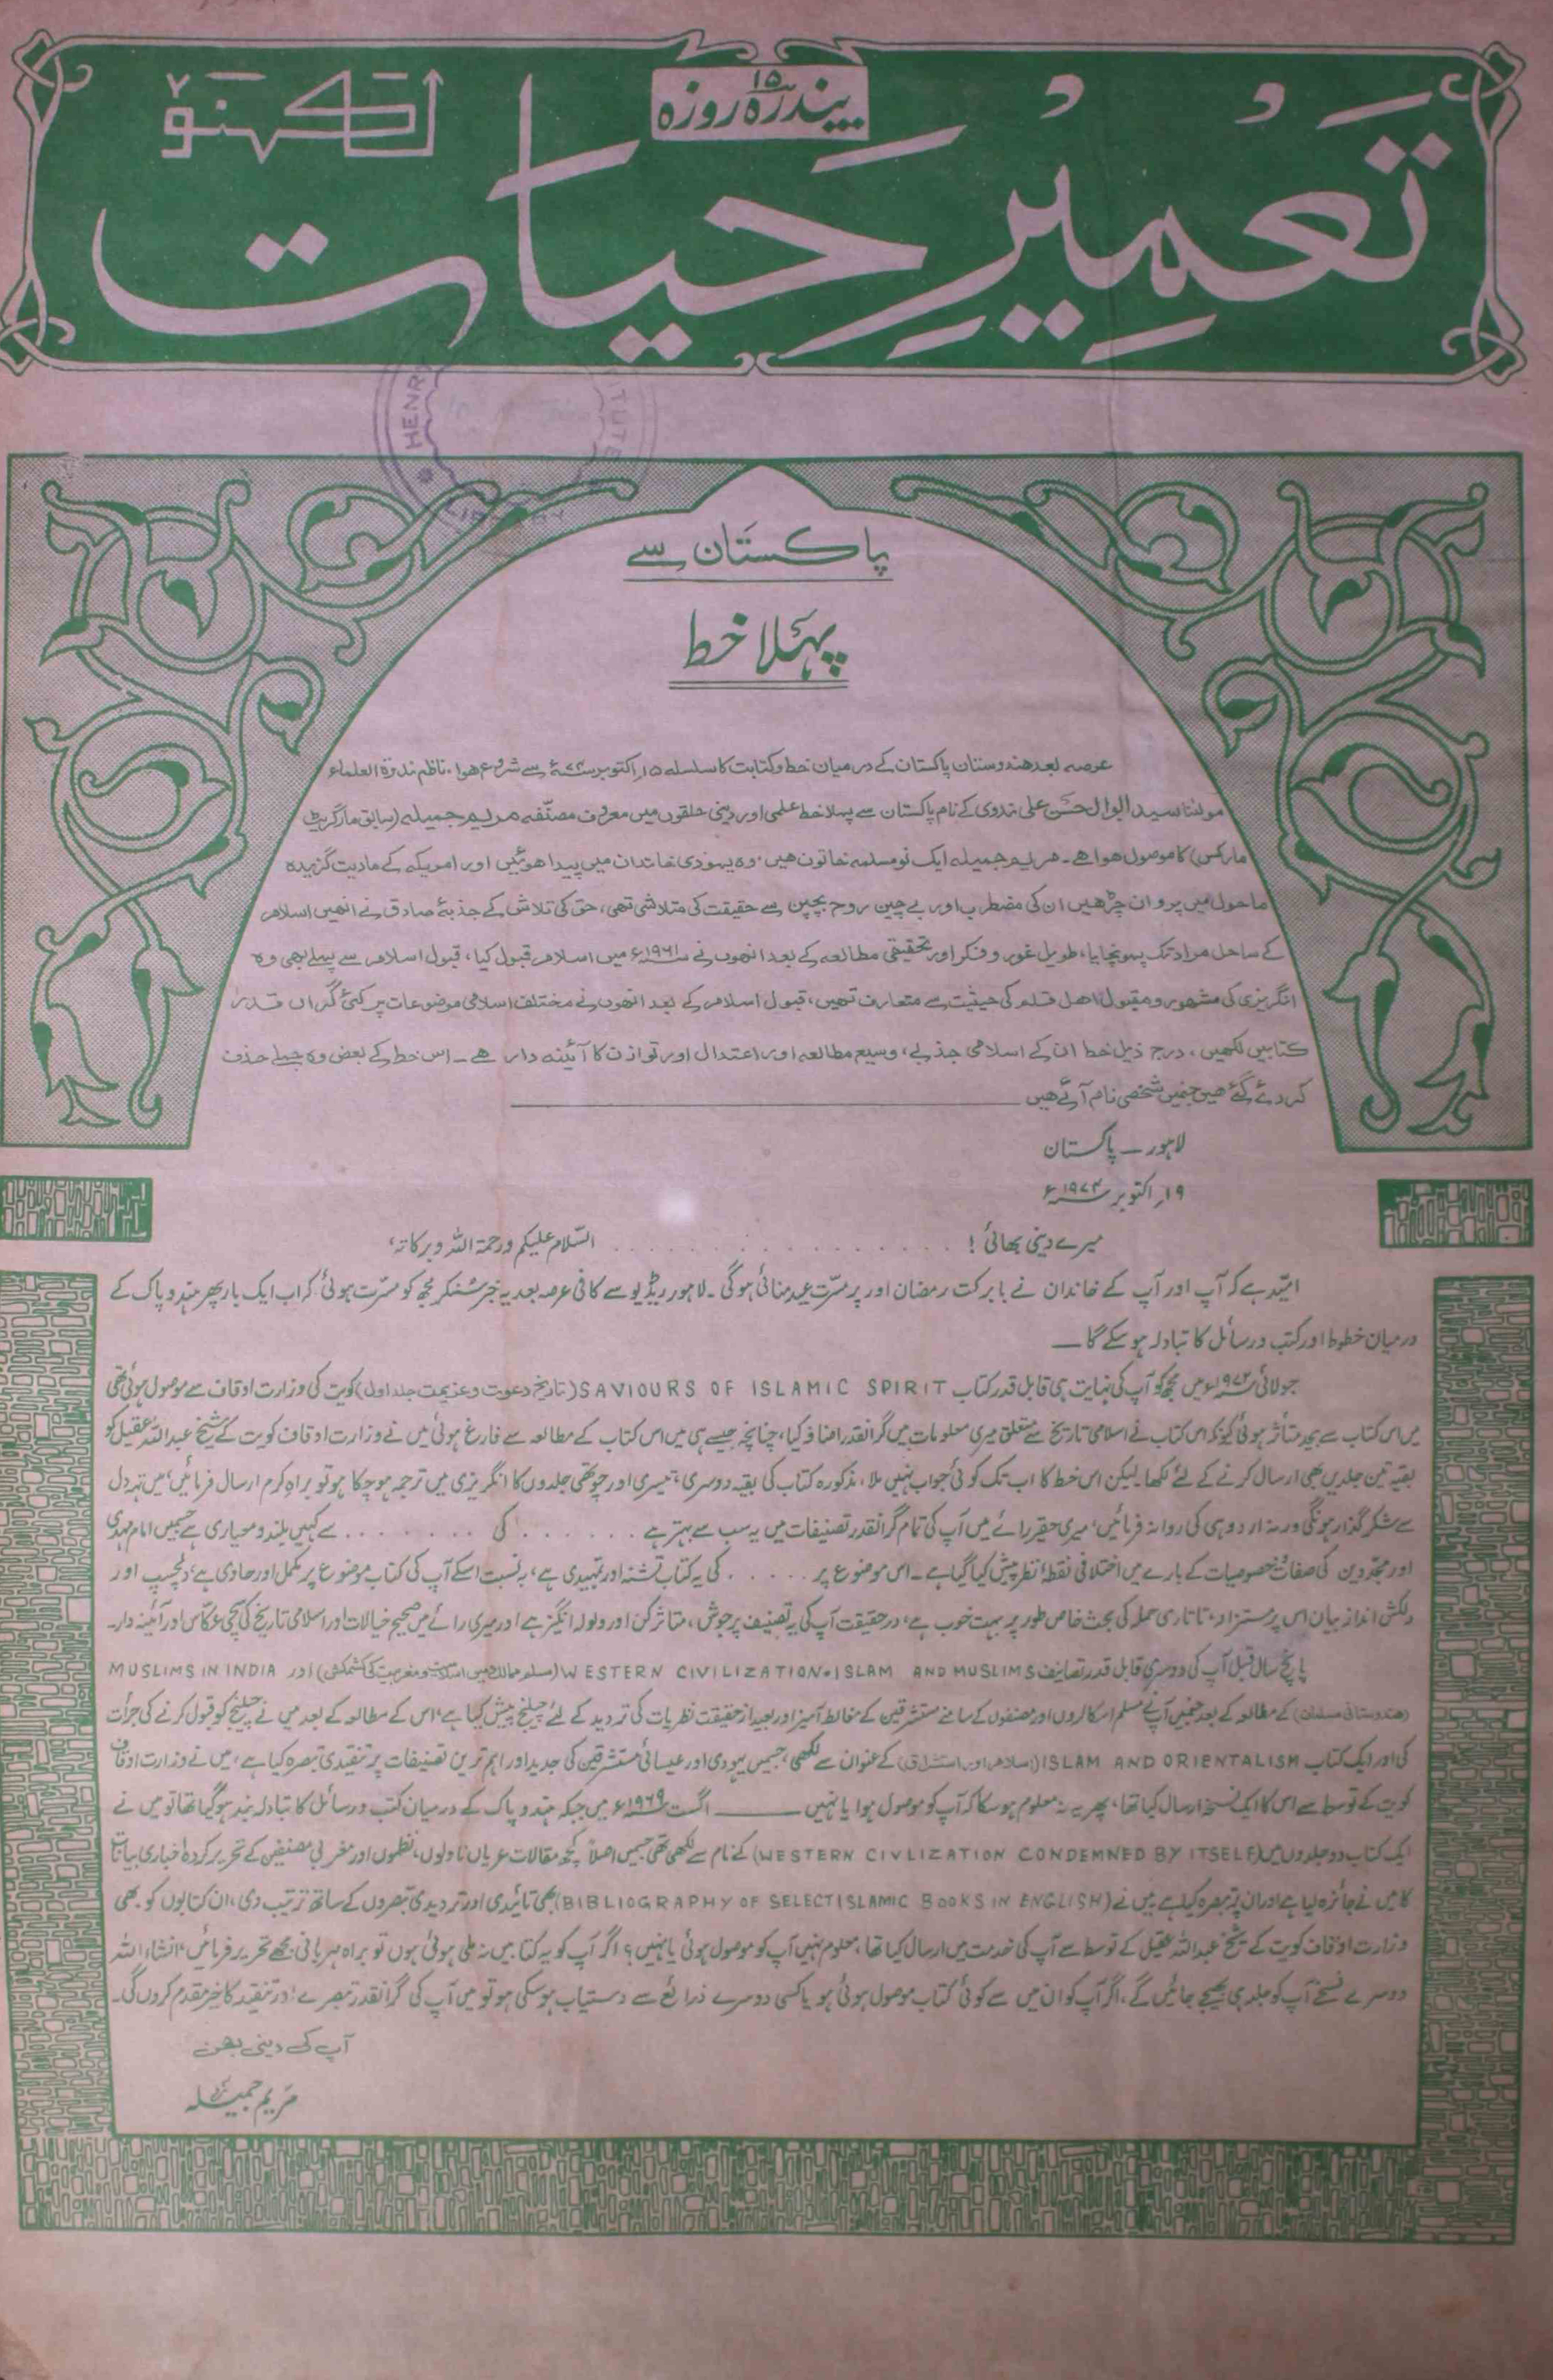 پندرہ ۱۵ روزہ
تعمیرِ حیات
لکھنؤ
HENRY
ITUTE
پاکستان سے
پہلا خط
عرصہ بعد ہندوستان پاکستان کے درمیان خط و کتابت کا سلسلہ ۱۵ اکتوبر ۷۴ء سے شروع ہوا۔ ناظم ندوۃ العلماء
مولٰنا سید ابو الحسن علی ندوی کے نام پاکستان سے پہلا خط علمی اور دینی حلقوں میں معروف مصنّفہ مریم جمیلہ (سابق مارگریٹ
مارکس) کا موصول ہوا ہے۔ مریم جمیلہ ایک نو مسلمہ خاتون ہیں۔ وہ یہودی خاندان میں پیدا ہوئیں اور امریکہ کے مادیت گزیدہ
ماحول میں پروان چڑھیں ان کی مضطرب اور بے چین روح بچپن سے حقیقت کی متلاشی تھی، حق کی تلاش کے جذبۂ صادق نے انھیں اسلام
کے ساحل مراد تک پہونچایا، طویل غور و فکر اور تحقیقی مطالعہ کے بعد انھوں نے ۱۹۶۱ء میں اسلام قبول کیا، قبول اسلام سے پہلے بھی وہ
انگریزی کی مشہور و مقبول اھل قلم کی حیثیت سے متعارف تھیں، قبول اسلام کے بعد انھوں نے مختلف اسلامی موضوعات پر کئی گراں قدر
کتابیں لکھیں، درج ذیل خط ان کے اسلامی جذبے، وسیع مطالعہ اور اعتدال اور توازن کا آئینہ دار ہے۔ اس خط کے بعض وہ جملے حذف
کر دئے گئے ھیں جنمیں شخصی نام آئے ھیں
لاہور ۔ پاکستان
۱۹ اکتوبر ۱۹۷۴ء
میرے دینی بھائی! . . . . . . . . . . . . . . . . السّلام علیکم ورحمۃ اللہ وبرکاتہ،
امیّد ہے کہ آپ اور آپ کے خاندان نے بابرکت رمضان اور پر مسرّت عید منائی ہوگی۔ لاہور ریڈیو سے کافی عرصہ بعد یہ خبر سنکر مجھ کو مسرّت ہوئی کہ اب ایک بار پھر ہند و پاک کے
درمیان خطوط اور کتب و رسائل کا تبادلہ ہو سکے گا ـــ
جولائی ۱۹۷۳ء میں مجھ کو آپ کی نہایت ہی قابل قدر کتاب SAVIOURS OF ISLAMIC SPIRIT (تاریخ دعوت و عزیمت جلد اول) کویت کی وزارت اوقاف سے موصول ہوئی تھی
میں اس کتاب سے بیحد متأثر ہوئی کیونکہ اس کتاب نے اسلامی تاریخ سے متعلق میری معلومات میں گرانقدر اضافہ کیا، چنانچہ جیسے ہی میں اس کتاب کے مطالعہ سے فارغ ہوئی میں نے وزارت اوقاف کویت کے شیخ عبد اللہ عقیل کو
بقیہ تین جلدیں بھی ارسال کرنے کے لئے لکھا۔ لیکن اس خط کا اب تک کوئی جواب نہیں ملا، مذکورہ کتاب کی بقیہ دوسری، تیسری اور چوتھی جلدوں کا انگریزی میں ترجمہ ہو چکا ہو تو براہِ کرم ارسال فرمائیں، میں تہہ دل
سے شکر گذار ہونگی ورنہ اردو ہی کی روانہ فرمائیں، میری حقیر رائے میں آپ کی تمام گرانقدر تصنیفات میں یہ سب سے بہتر ہے . . . . . . کی . . . . . . . سے کہیں بلند و معیاری ہے جسمیں امام مہدی
اور مجدّدین کی صفات و خصوصیات کے بارے میں اختلافی نقطۂ نظر پیش کیا گیا ہے۔ اس موضوع پر . . . . . کی یہ کتاب تشنہ اور تمہیدی ہے، بہ نسبت اسکے آپ کی کتاب موضوع پر مکمل اور حاوی ہے، دلچسپ اور
دلکش انداز بیان اس پر مستزاد، تاتاری حملہ کی بحث خاص طور پر بہت خوب ہے، درحقیقت آپ کی یہ تصنیف پر جوش، متاثر کن اور ولولہ انگیز ہے اور میری رائے میں صحیح خیالات اور اسلامی تاریخ کی سچی عکّاس اور آئینہ دار۔
پانچ سال قبل آپ کی دوسری قابل قدر تصانیف WESTERN CIVILIZATION-ISLAM AND MUSLIMS (مسلم ممالک میں اسلامیت و مغربیت کی کشمکش) اور MUSLIMS IN INDIA
(ھندوستانی مسلمان) کے مطالعہ کے بعد جنمیں آپ نے مسلم اسکالروں اور مصنفوں کے سامنے مستشرقین کے مغالطہ آمیز اور بعید از حقیقت نظریات کی تردید کے لئے چیلنج پیش کیا ہے، اس کے مطالعہ کے بعد میں نے چیلنج کو قبول کرنے کی جرأت
کی اور ایک کتاب ISLAM AND ORIENTALISM (اسلام اور استشراق) کے عنوان سے لکھی، جسمیں یہودی اور عیسائی مستشرقین کی جدید اور اہم ترین تصنیفات پر تنقیدی تبصرہ کیا ہے، میں نے وزارت اوقاف
کویت کے توسط سے اس کا ایک نسخہ ارسال کیا تھا، پھر یہ نہ معلوم ہو سکا کہ آپ کو موصول ہوا یا نہیں ــــــ اگست ۱۹۶۹ء میں جبکہ ہند و پاک کے درمیان کتب و رسائل کا تبادلہ بند ہو گیا تھا تو میں نے
ایک کتاب دو جلدوں میں (WESTERN CIVLIZATION CONDEMNED BY ITSELF) کے نام سے لکھی تھی جسمیں اصلاً کچھ مقالات عریاں ناولوں، نظموں اور مغربی مصنفین کے تحریر کردہ اخباری بیانات
کا میں نے جائزہ لیا ہے اور ان پر تبصرہ کیا ہے میں نے (BIBLIOGRAPHY OF SELECT ISLAMIC BOOKS IN ENGLISH) بھی تائیدی اور تردیدی تبصروں کے ساتھ ترتیب دی، ان کتابوں کو بھی
وزارت اوقاف کویت کے شیخ عبد اللہ عقیل کے توسط سے آپ کی خدمت میں ارسال کیا تھا، معلوم نہیں آپ کو موصول ہوئی یا نہیں؟ اگر آپ کو یہ کتابیں نہ ملی ہوئی ہوں تو براہ مہربانی مجھے تحریر فرمائیں، انشاء اللہ
دوسرے نسخے آپ کو جلد ہی بھیجے جائیں گے، اگر آپ کو ان میں سے کوئی کتاب موصول ہوئی ہو یا کسی دوسرے ذرائع سے دستیاب ہو سکی ہو تو میں آپ کی گرانقدر تبصرے اور تنقید کا خیر مقدم کروں گی۔
آپ کی دینی بہن
مریم جمیلہ